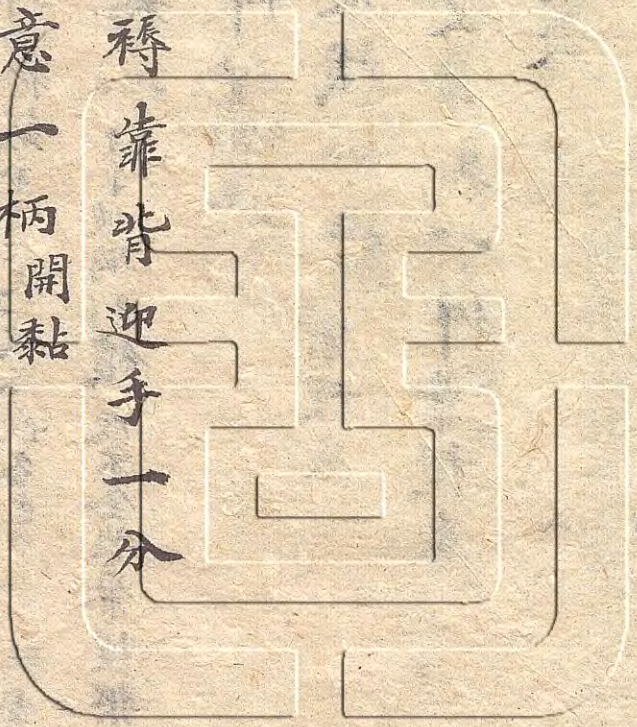 褥靠背迎手一分
意一柄開黏